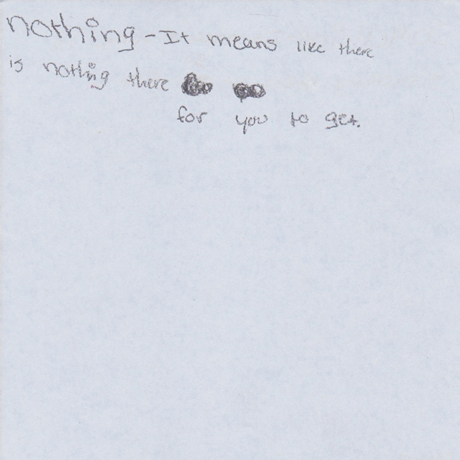 nothing - It means like there
is nothing there
for you to get.